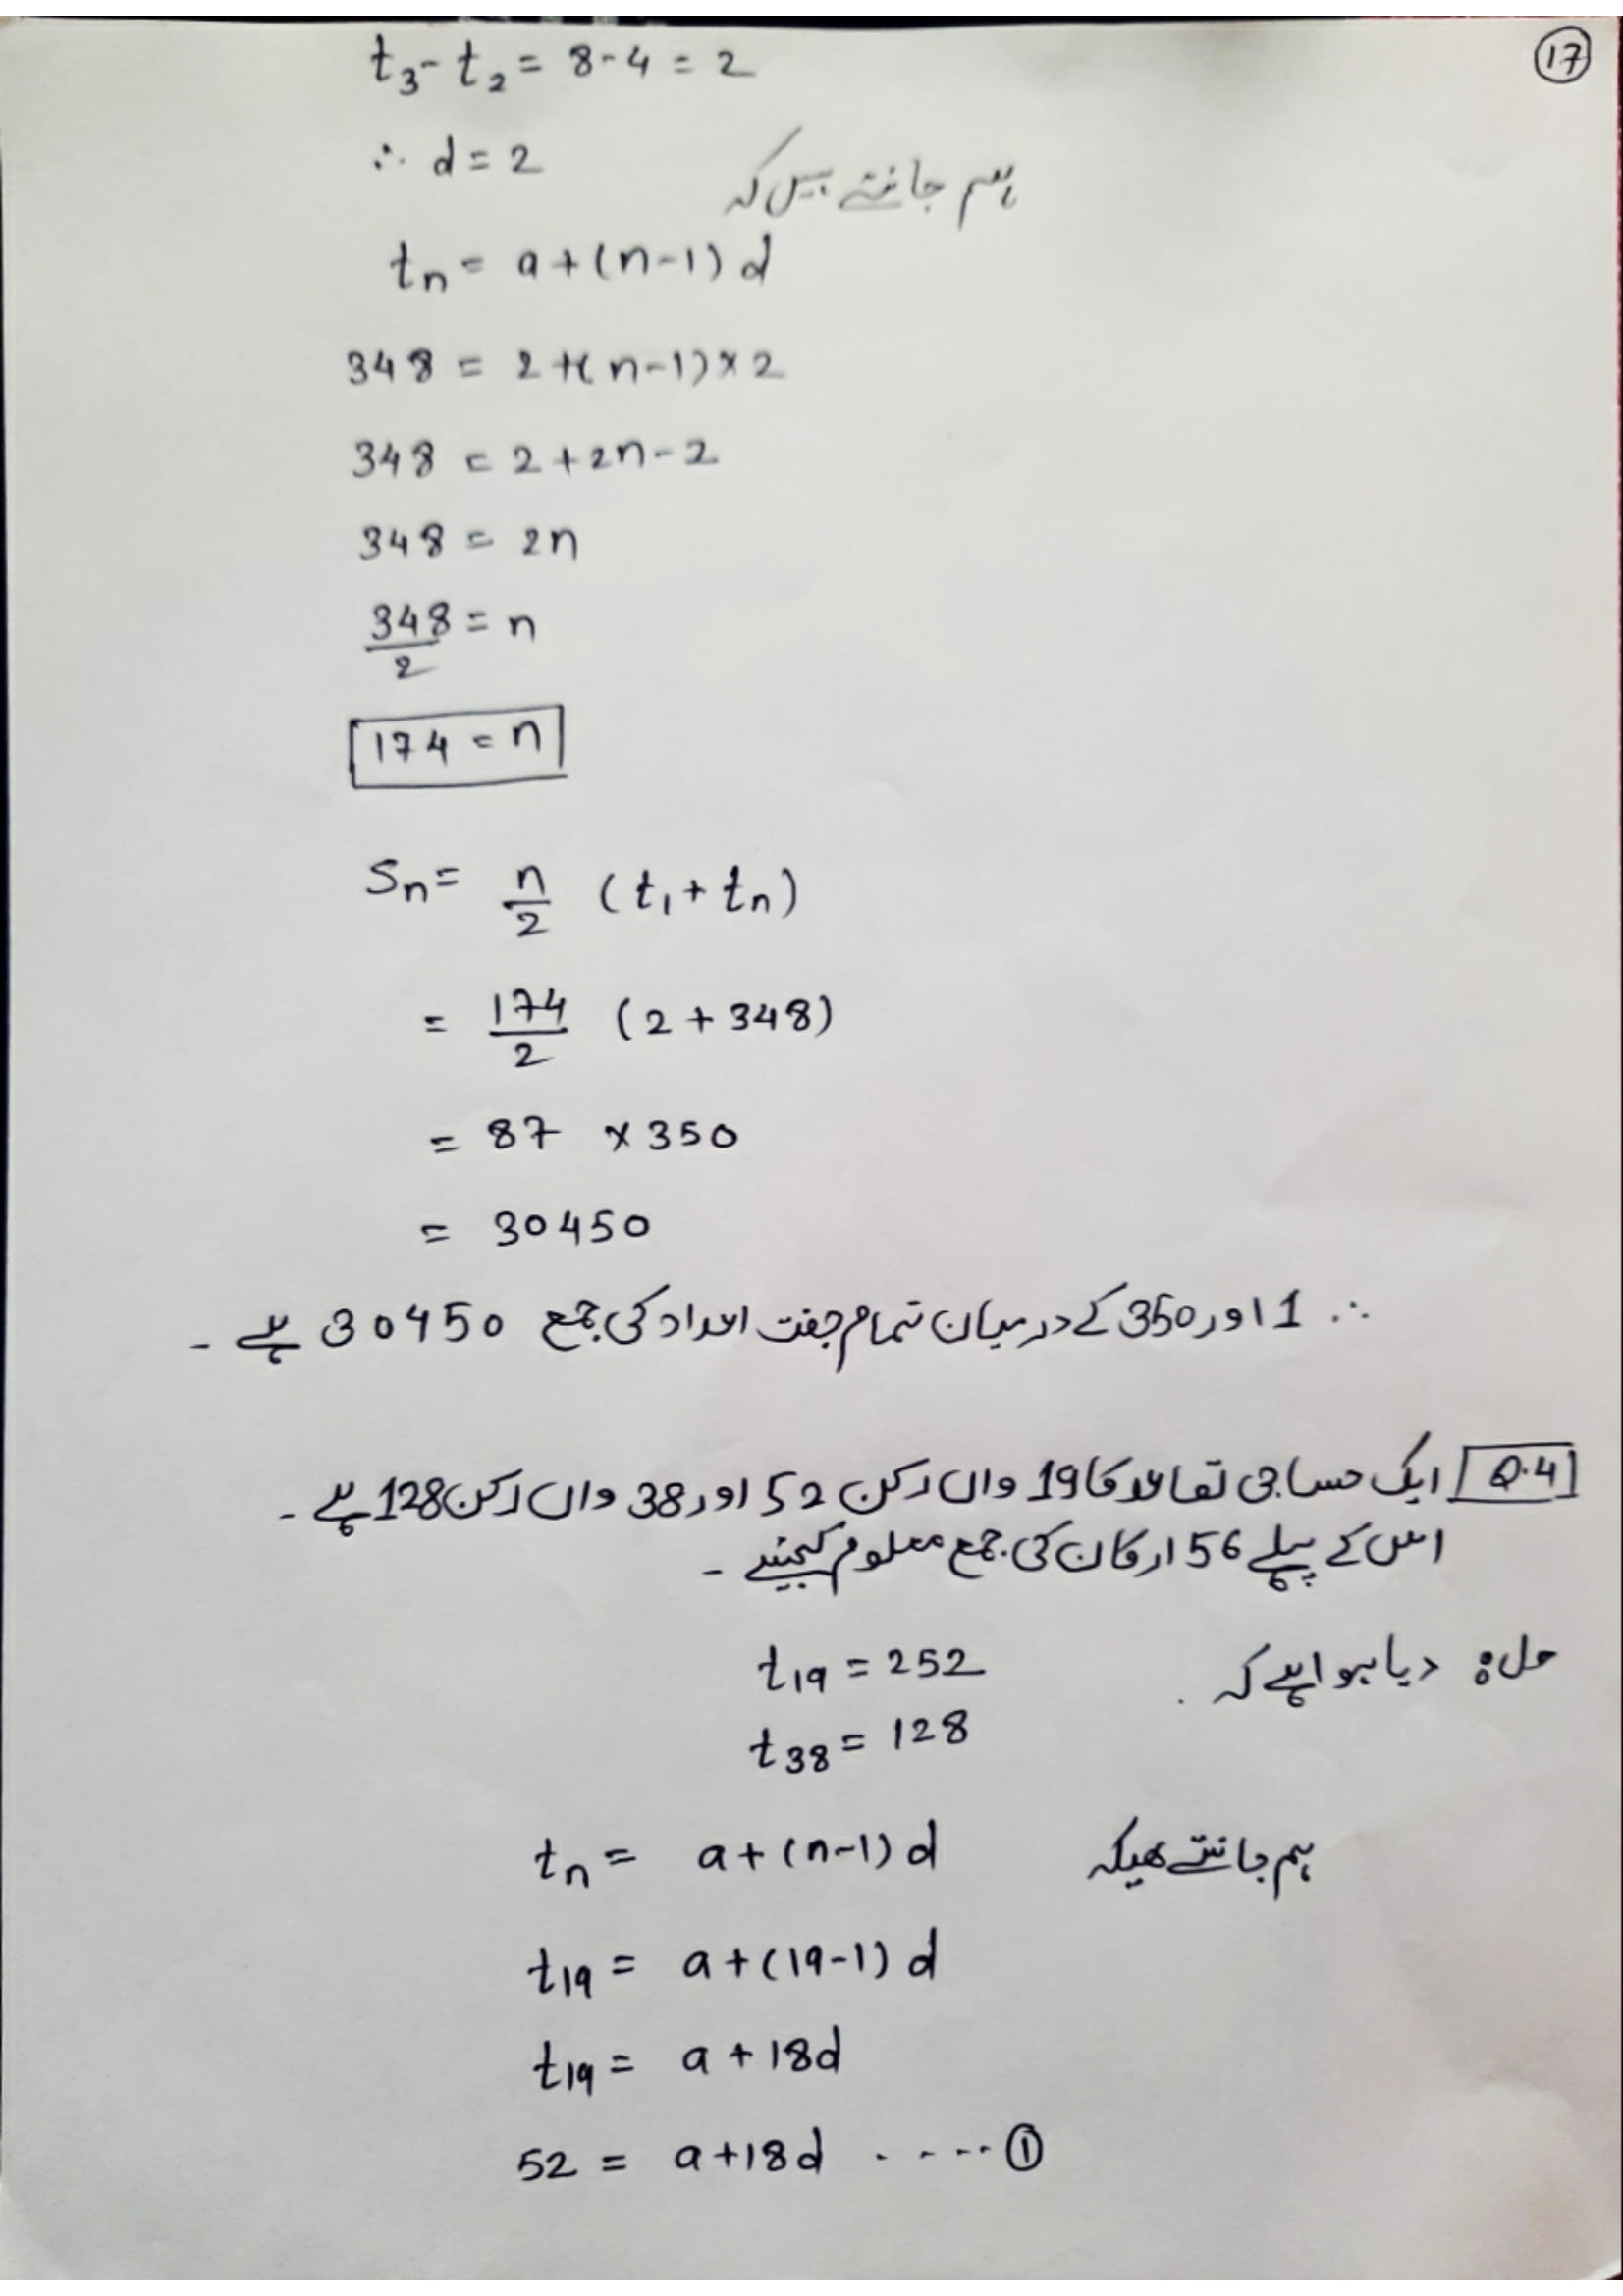 17
t₃ - t₂ = 8 - 4 = 2
∴ d = 2
ہم جانتے ہیں کہ
tₙ = a + (n-1) d
348 = 2 + (n-1) × 2
348 = 2 + 2n - 2
348 = 2n
348/2 = n
174 = n
Sₙ = n/2 (t₁ + tₙ)
= 174/2 (2 + 348)
= 87 × 350
= 30450
∴ 1 اور 350 کے درمیان تمام جفت اعداد کی جمع 30450 ہے ۔
Q.4 ایک حسابی تصاعد کا 19 واں رکن 52 اور 38 واں رکن 128 ہے ۔
اس کے پہلے 56 ارکان کی جمع معلوم کیجئیے ۔
حل: دیا ہوا ہے کہ t₁₉ = 252
t₃₈ = 128
ہم جانتے ھیکہ tₙ = a + (n-1) d
t₁₉ = a + (19-1) d
t₁₉ = a + 18d
52 = a + 18d ..... ①